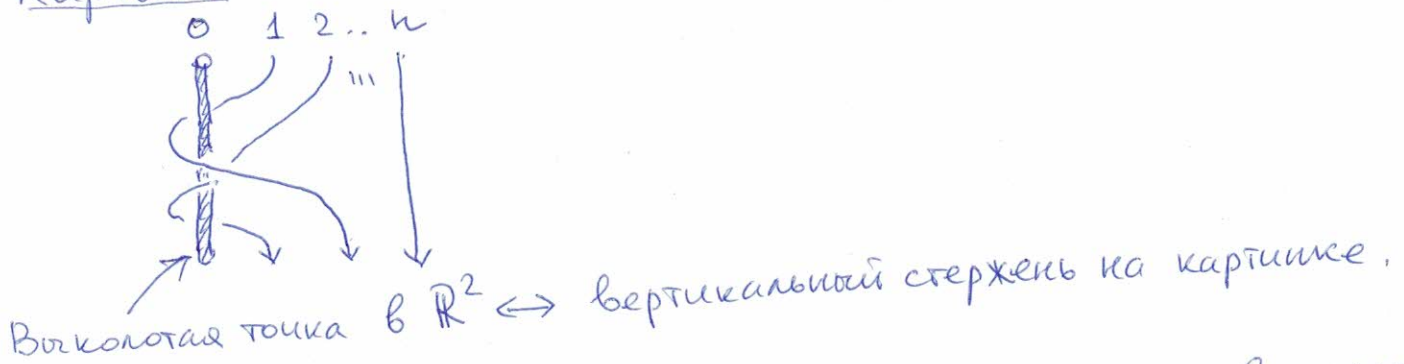 0 1 2 .. n
...
Выколотая точка в ℝ² ↔ вертикальный стержень на картинке.